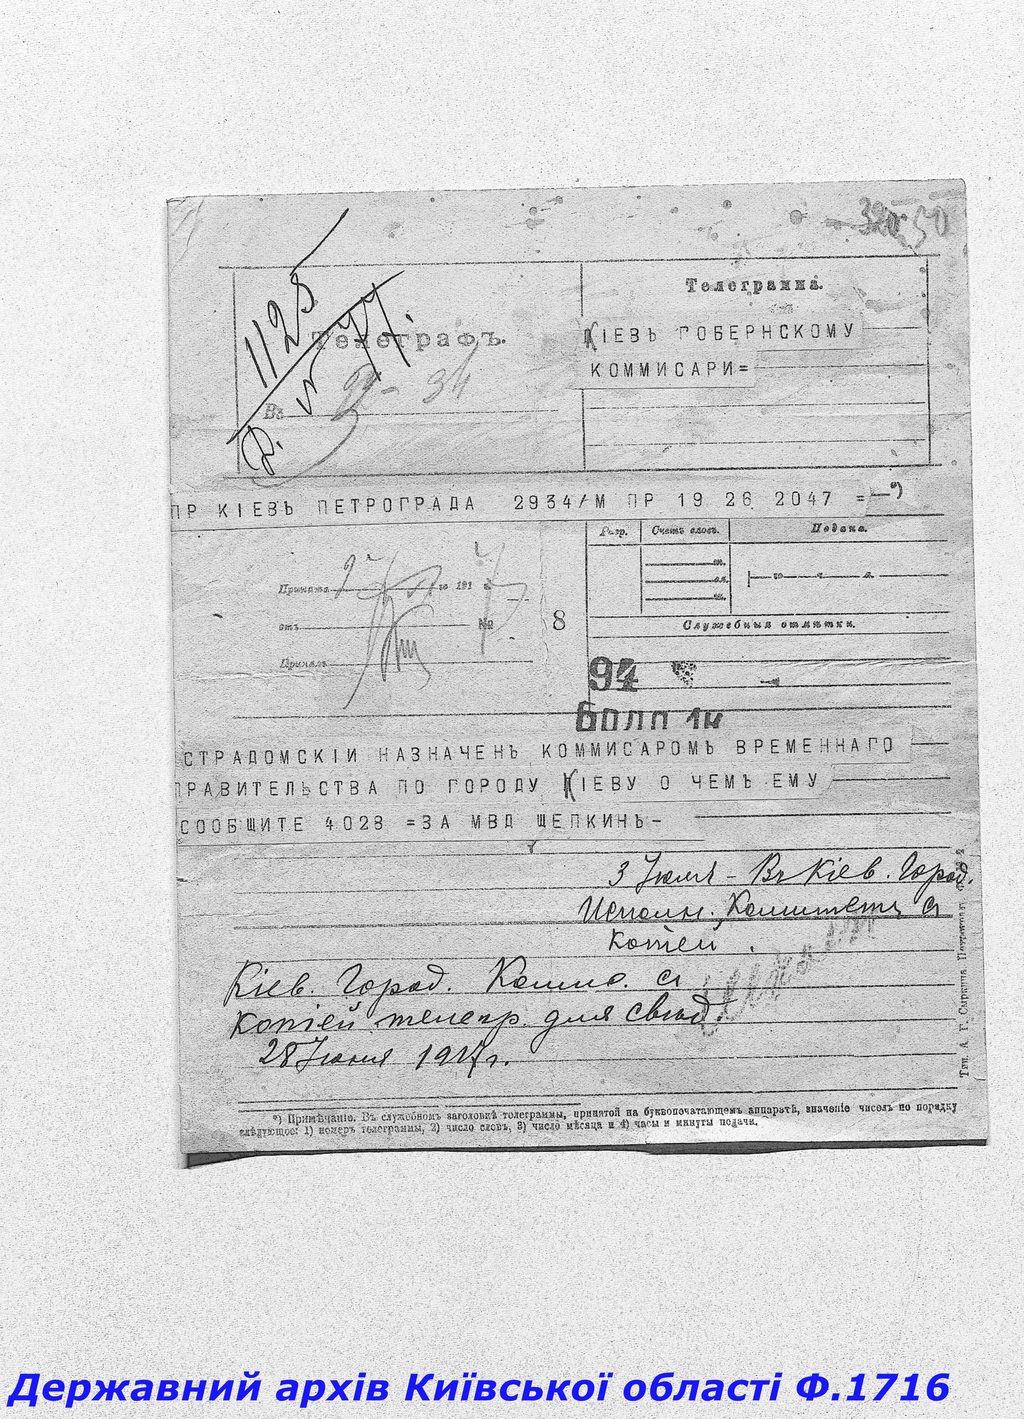 320 50
1128
Телеграмма.
Телеграфъ.
КІЕВЪ ГОБЕРНСКОМУ
КОММИСАРИ=
Въ
ПР КІЕВЪ ПЕТРОГРАДА 2934/М ПР 19 26 2047 =—*)
Разр. Счетъ словъ. Подача.
Принята 191
отъ № 8
Служебныя отмѣтки.
Принялъ
94
СТРАДОМСКІЙ НАЗНАЧЕНЪ КОММИСАРОМЪ ВРЕМЕННАГО
ПРАВИТЕЛЬСТВА ПО ГОРОДУ КІЕВУ О ЧЕМЪ ЕМУ
СООБЩИТЕ 4028 =ЗА МВД ЩЕПКИНЪ-
3 Іюля - Въ Кіев. Город.
Исполн. Комитетъ съ
копіей.
Кіев. Город. Комис. съ
копіей телегр. для свѣд.
28 Іюня 1917 г.
*) Примѣчаніе. Въ служебномъ заголовкѣ телеграммы, принятой на буквопечатающемъ аппаратѣ, значеніе чиселъ по порядку
слѣдующее: 1) номеръ телеграммы, 2) число словъ, 3) число мѣсяца и 4) часы и минуты подачи.
Державний архів Київської області Ф.1716